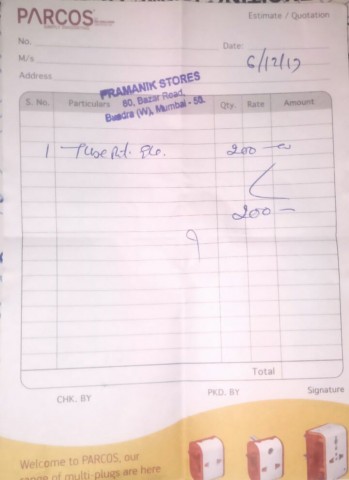 PARCOS
Estimate / Quotation
No.
Date:
M/s
6/12/17
Address
PRAMANIK STORES
60, Bazar Road,
Bandra (W), Mumbai - 50.
S. No. Particulars Qty. Rate Amount
1 200
200
Total
CHK. BY PKD. BY Signature
Welcome to PARCOS, our
range of multi-plugs are here